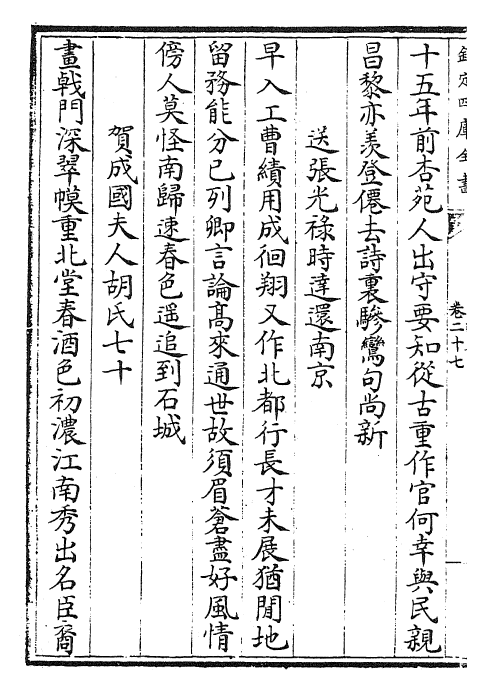 欽定四庫全書
卷二十七
十五年前杏苑人出守要知從古重作官何幸與民親
昌黎亦羡登僊去詩裏驂鸞句尚新
送張光祿時達還南京
早入工曹績用成徊翔又作北都行長才未展猶閒地
留務能分已列卿言論髙來通世故須眉蒼盡好風情
傍人莫怪南歸速春色遥追到石城
賀成國夫人胡氏七十
畫戟門深翠幙重北堂春酒色初濃江南秀出名臣裔